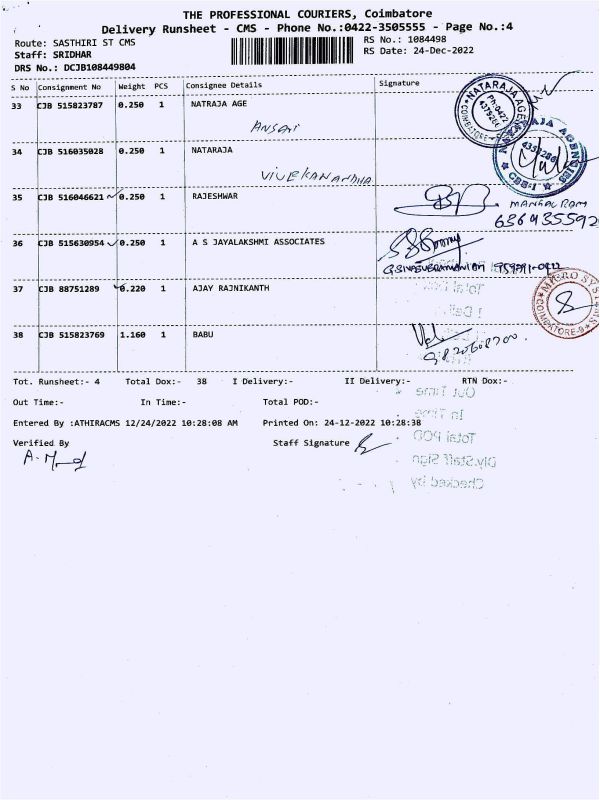 THE PROFESSIONAL COURIERS, Coimbatore
Delivery Runsheet - CMS - Phone No.:0422-3505555 - Page No.:4
Route: SASTHIRI ST CMS RS No.: 1084498
Staff: SRIDHAR RS Date: 24-Dec-2022
DRS No.: DCJB108449804
S No Consignment No Weight PCS Consignee Details Signature
33 CJB 515823787 0.250 1 NATRAJA AGE
ANSARI
34 CJB 516035028 0.250 1 NATARAJA
VIVEKANANDHA
35 CJB 516046621 0.250 1 RAJESHWAR
36 CJB 515630954 0.250 1 A S JAYALAKSHMI ASSOCIATES
37 CJB 88751289 0.220 1 AJAY RAJNIKANTH
MICRO SYSTEMS
COIMBATORE-9
38 CJB 515823769 1.160 1 BABU
Tot. Runsheet:- 4 Total Dox:- 38 I Delivery:- II Delivery:- RTN Dox:-
Out Time:- In Time:- Total POD:-
Out Time
In Time
Entered By :ATHIRACMS 12/24/2022 10:28:08 AM Printed On: 24-12-2022 10:28:38
Verified By Staff Signature
Total POD
Dly.Staff Sign
Checked by